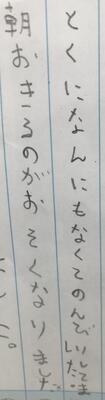 とくになんにもなくてのんびりしてました。
朝おきるのがおそくなりました